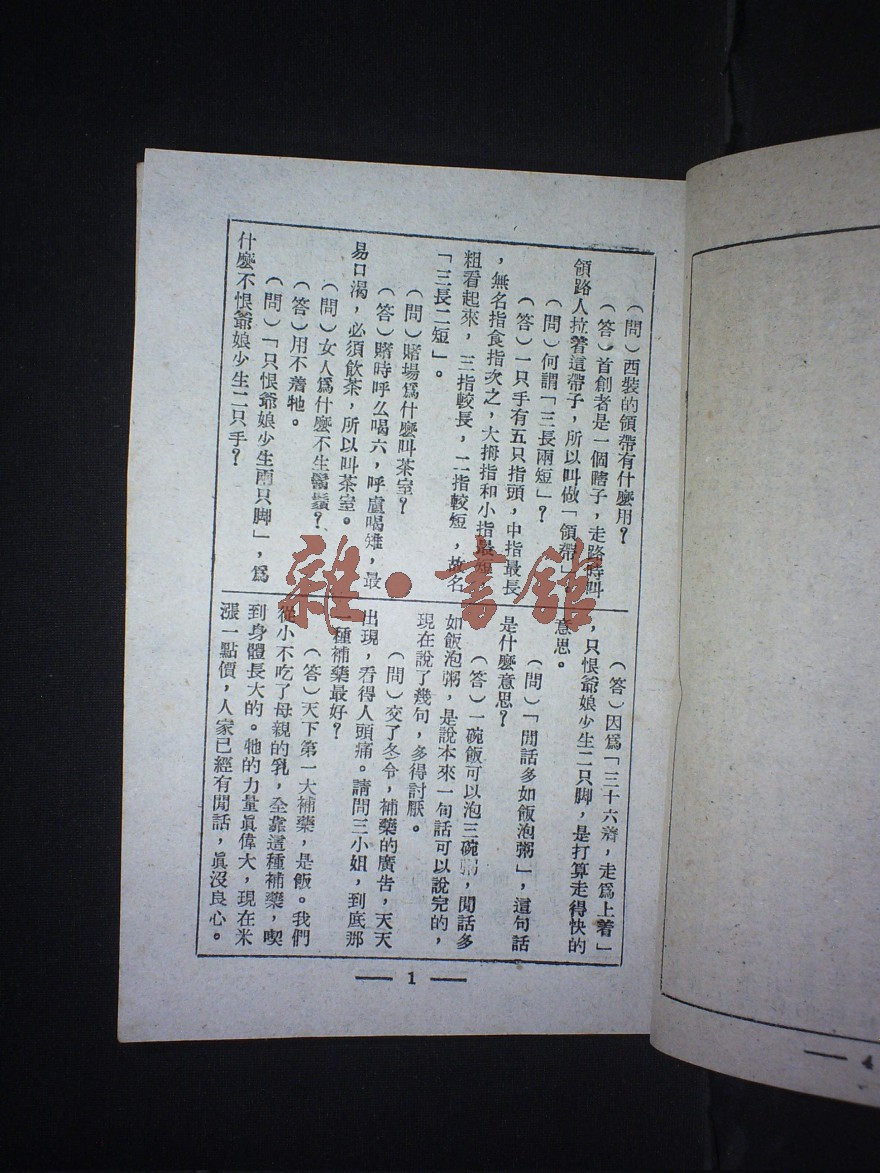 （問）西裝的領帶有什麼用？
（答）首創者是一個瞎子，走路時叫
領路人拉着這帶子，所以叫做「領帶」。
（問）何謂「三長兩短」？
（答）一只手有五只指頭，中指最長
，無名指食指次之，大拇指和小指最短
粗看起來，三指較長，二指較短，故名
「三長二短」。
（問）賭場爲什麼叫茶室？
（答）賭時呼么喝六，呼盧喝雉，最
易口渴，必須飲茶，所以叫茶室。
（問）女人爲什麼不生鬍鬚？
（答）用不着牠。
（問）「只恨爺娘少生兩只脚」，爲
什麼不恨爺娘少生二只手？
（答）因爲「三十六着，走爲上着」
，只恨爺娘少生二只脚，是打算走得快的
意思。
（問）「閒話多如飯泡粥」，這句話
是什麼意思？
（答）一碗飯可以泡三碗粥，閒話多
如飯泡粥，是說本來一句話可以說完的，
現在說了幾句，多得討厭。
（問）交了冬令，補藥的廣告，天天
出現，看得人頭痛。請問三小姐，到底那
一種補藥最好？
（答）天下第一大補藥，是飯。我們
從小不吃了母親的乳，全靠這種補藥，喫
到身體長大的。牠的力量眞偉大，現在米
漲一點價，人家已經有閒話，眞沒良心。
— 1 —
— 4
雜·書館